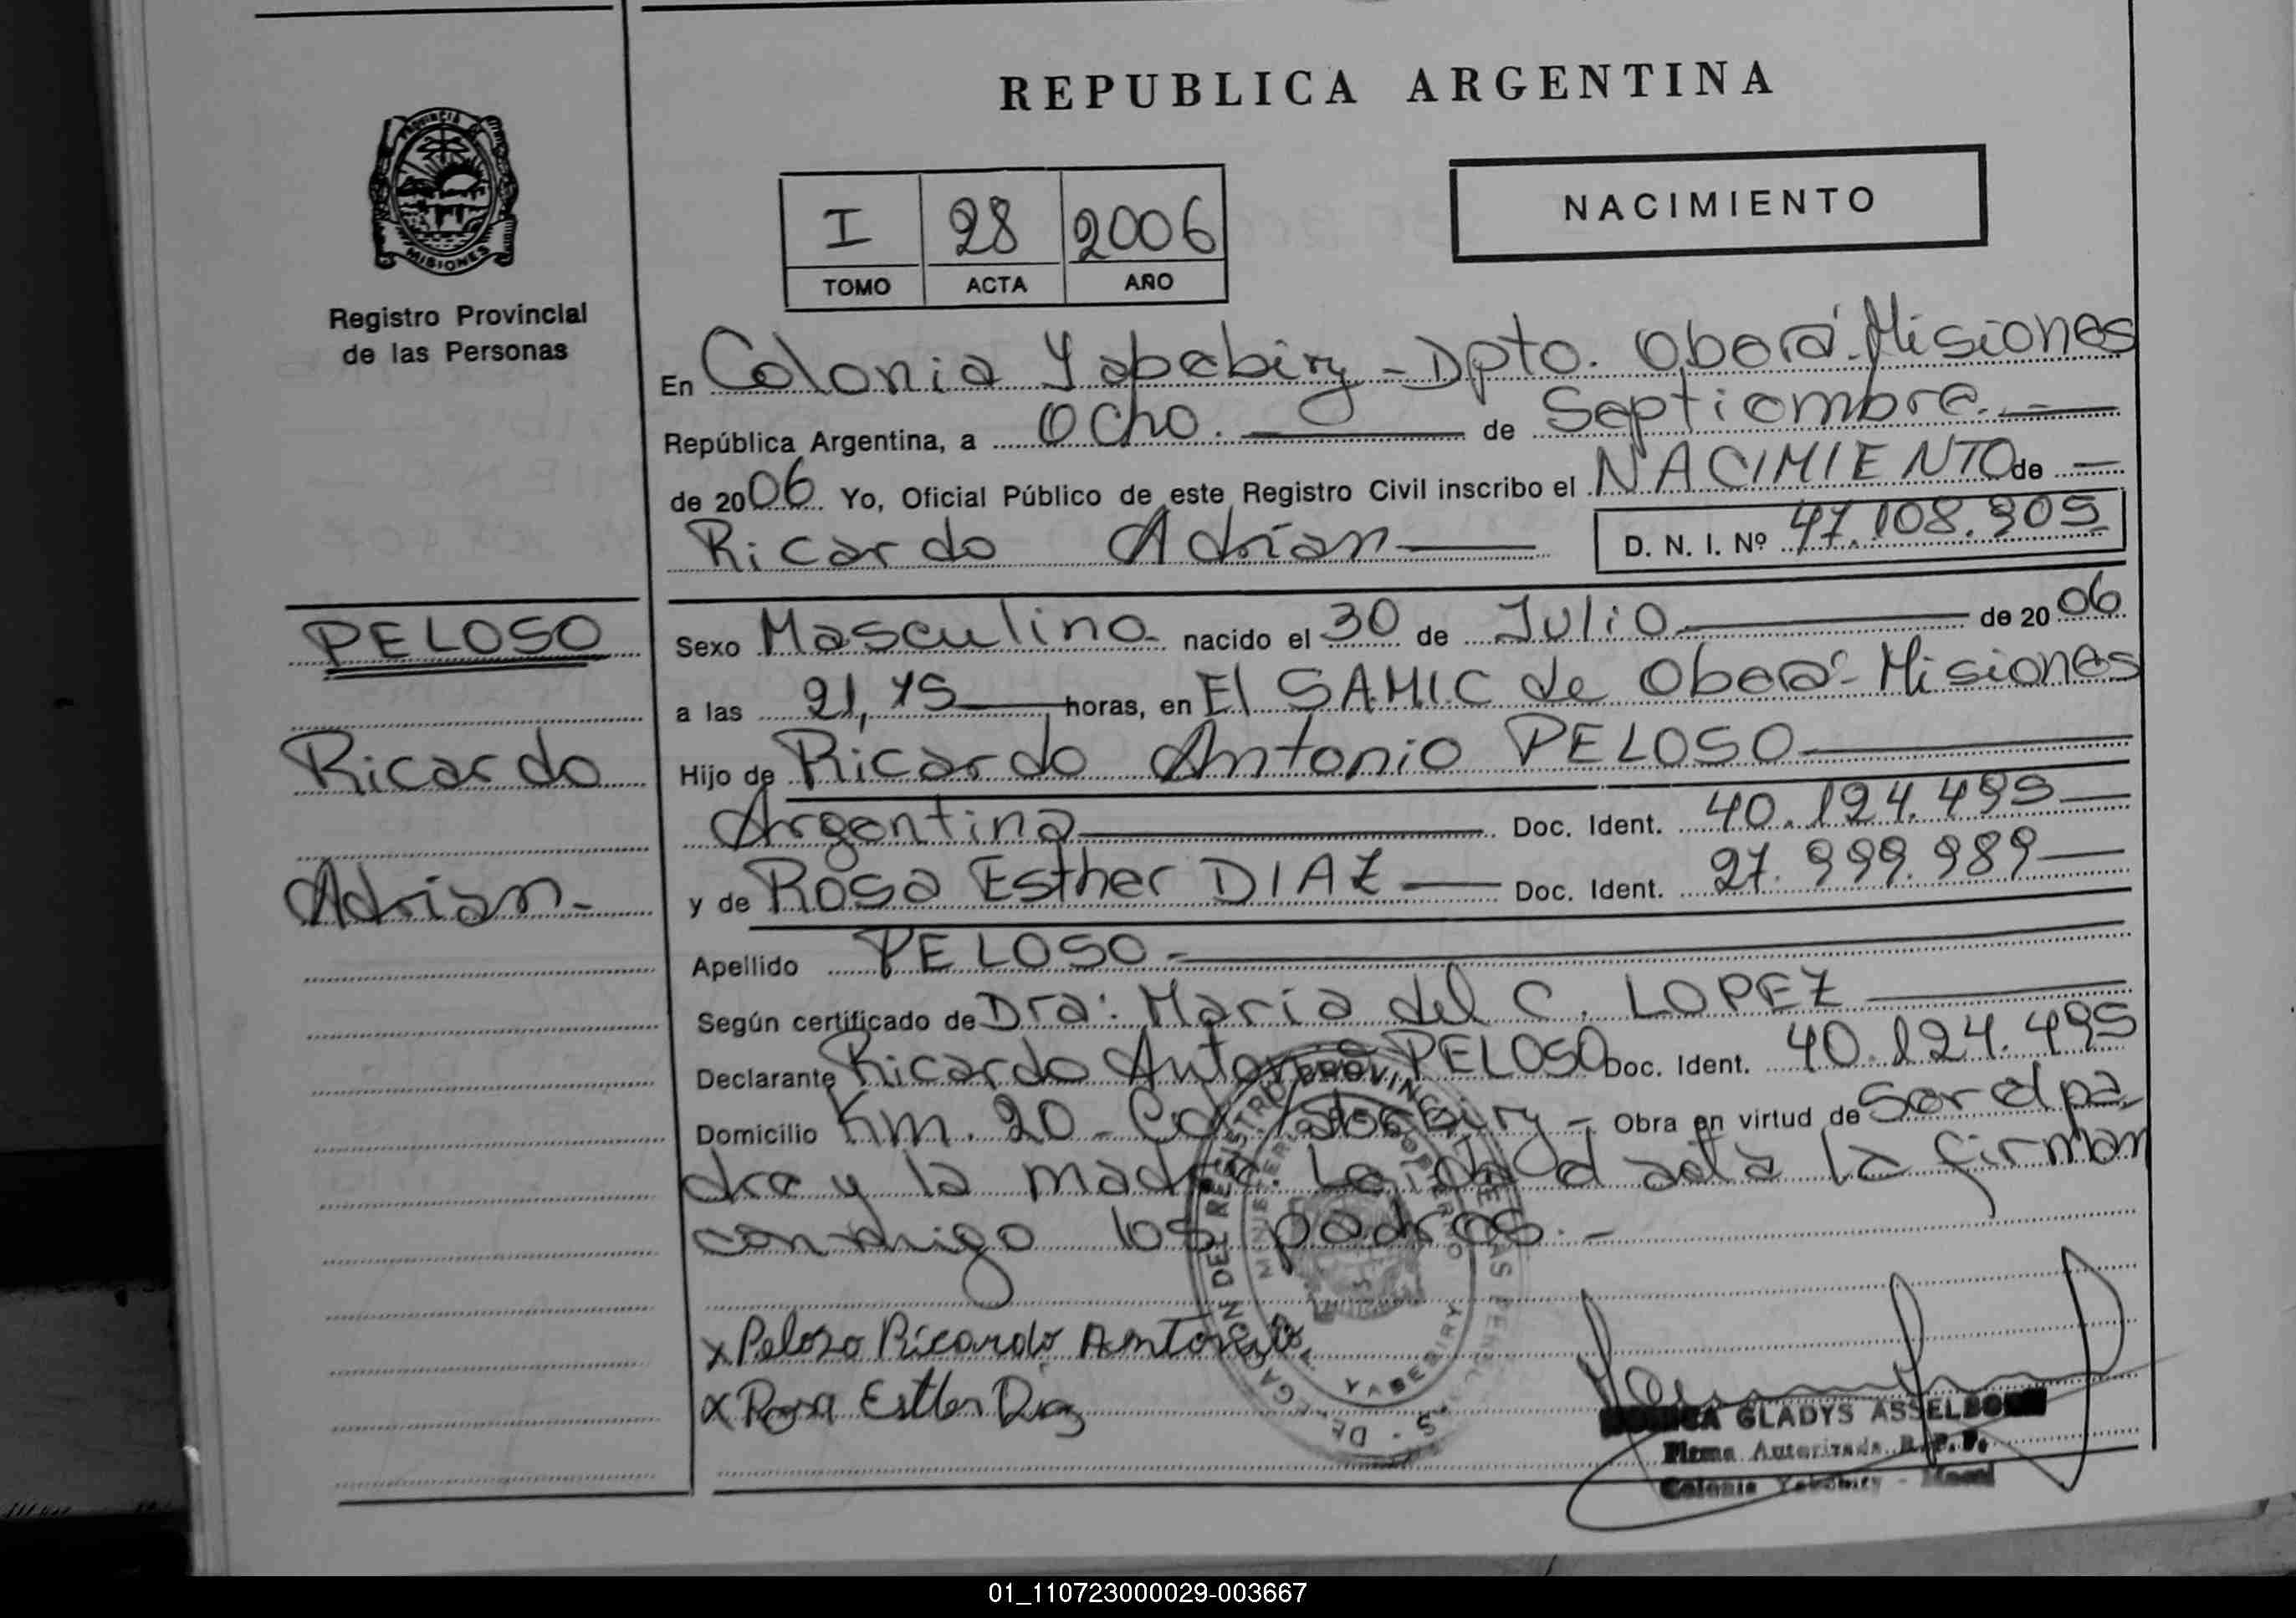 REPUBLICA ARGENTINA
PROVINCIA DE
MISIONES
Registro Provincial
de las Personas
NACIMIENTO
I 28 2006
TOMO ACTA AÑO
En Colonia Yabebiry - Dpto. Oberá - Misiones
República Argentina, a Ocho. de Septiembre.
de 2006 Yo, Oficial Público de este Registro Civil inscribo el NACIMIENTO de
Ricardo Adrían D. N. I. Nº 47.108.909
PELOSO
Ricardo
Adrian.
Sexo Masculino nacido el 30 de Julio de 2006
a las 21,15 horas, en El SAMIC de Oberá - Misiones
Hijo de Ricardo Antonio PELOSO
Argentina Doc. Ident. 40.124.495
y de Rosa Esther DIAZ Doc. Ident. 27.999.989
Apellido PELOSO
Según certificado de Dra: Maria del C. LOPEZ
Declarante Ricardo Antonio PELOSO Doc. Ident. 40.124.495
Domicilio Km. 20 - Col. Yabebiry - Obra en virtud de Ser el pa
dre y la madre. Leida el acta la firman
conmigo los padres. -
x Peloso Ricardo Antonio
x Rosa Esther Diaz
YABEBIRY
GLADYS ASSELBORN
Firma Autorizada R. P. P.
Colonia Yabebiry
01_110723000029-003667